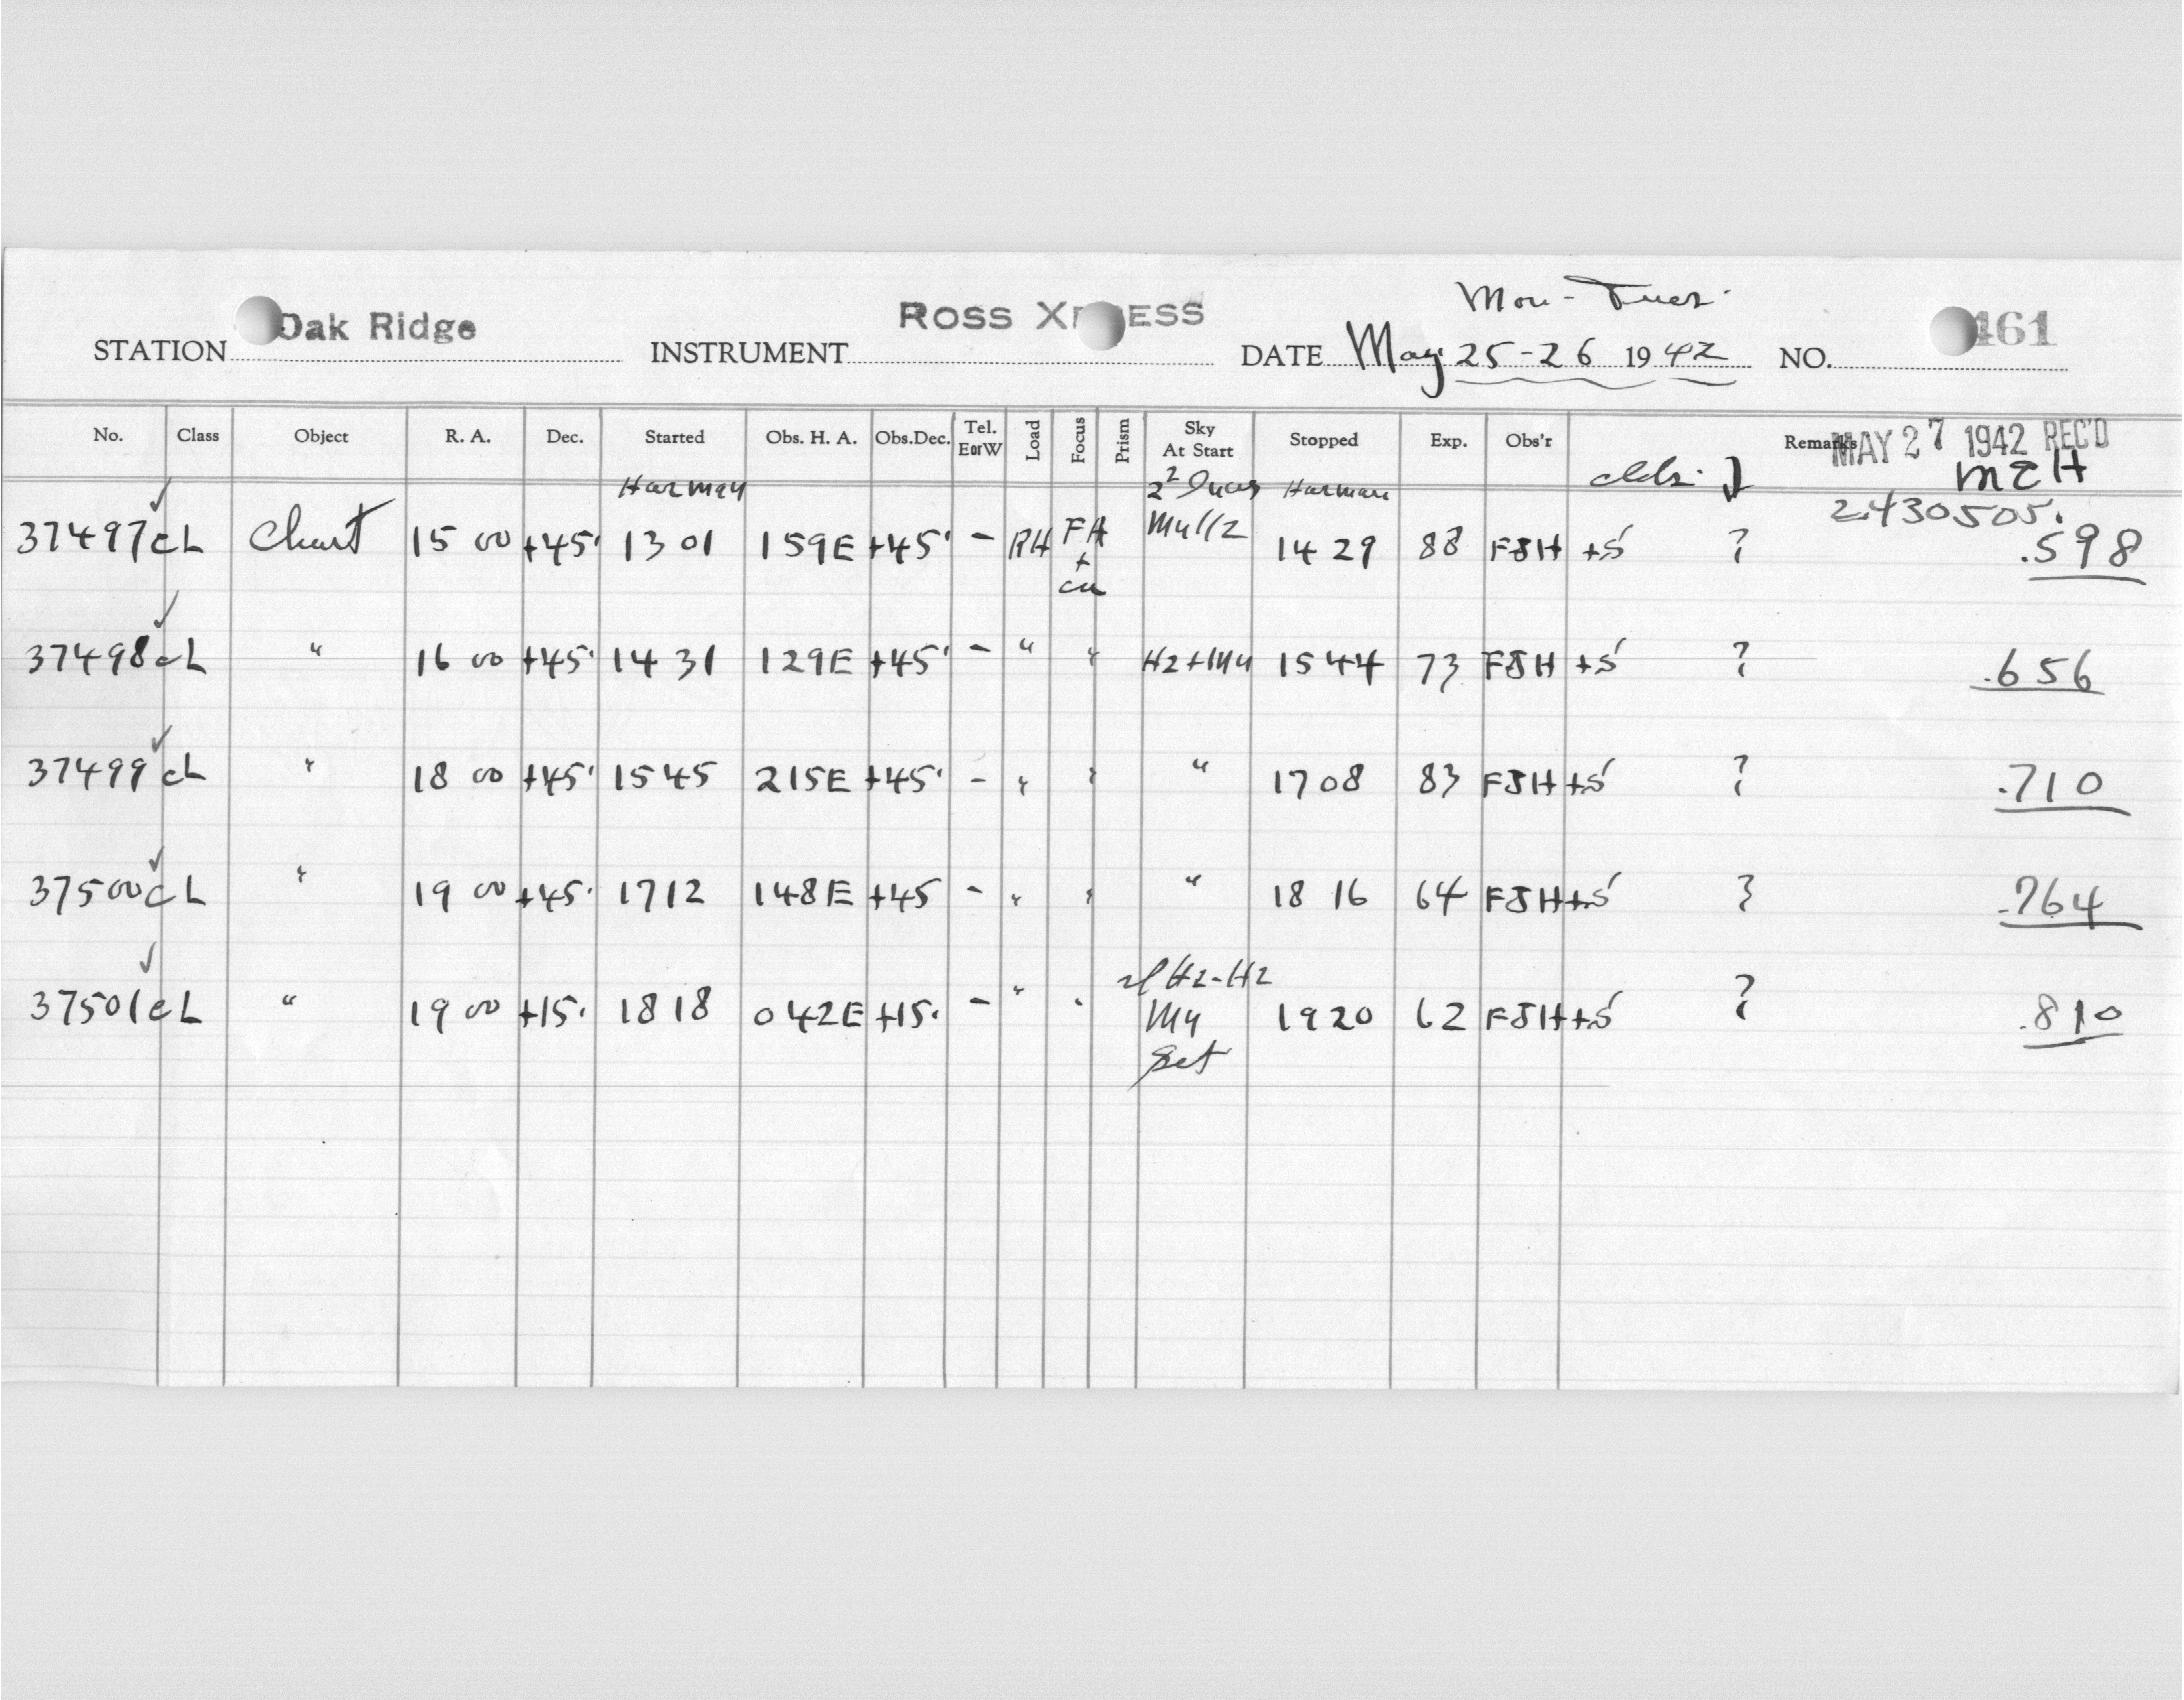 Mon - Tues.
STATION Oak Ridge INSTRUMENT ROSS X ESS DATE May 25-26 1942 NO. 461
No. Class Object R. A. Dec. Started Obs. H. A. Obs.Dec. Tel. EorW Load Focus Prism Sky At Start Stopped Exp. Obs'r Remarks
MAY 27 1942 REC'D
Harman Harman MZH
2430505.
37497 cL Chart 15 00 +45° 1301 159E +45° - RH FA + 1429 88 FJH +5 ? .598
37498 cL " 16 00 +45° 1431 129E +45° - " " Hz+My 1544 73 FJH +5 ? .656
37499 cL " 18 00 +45° 1545 215E +45° - " " " 1708 83 FJH +5 ? .710
37500 cL " 19 00 +45° 1712 148E +45 - " " " 1816 64 FJH +5 ? .764
37501 cL " 19 00 +15° 1818 042E +15° - " " sl Hz-Hz My Set 1920 62 FJH +5 ? .810